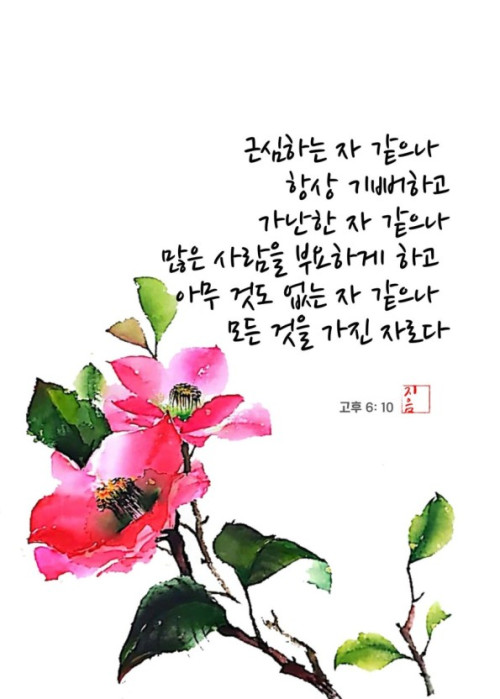 근심하는 자 같으나
항상 기뻐하고
가난한 자 같으나
많은 사람을 부요하게 하고
아무 것도 없는 자 같으나
모든 것을 가진 자로다
고후 6: 10
지음